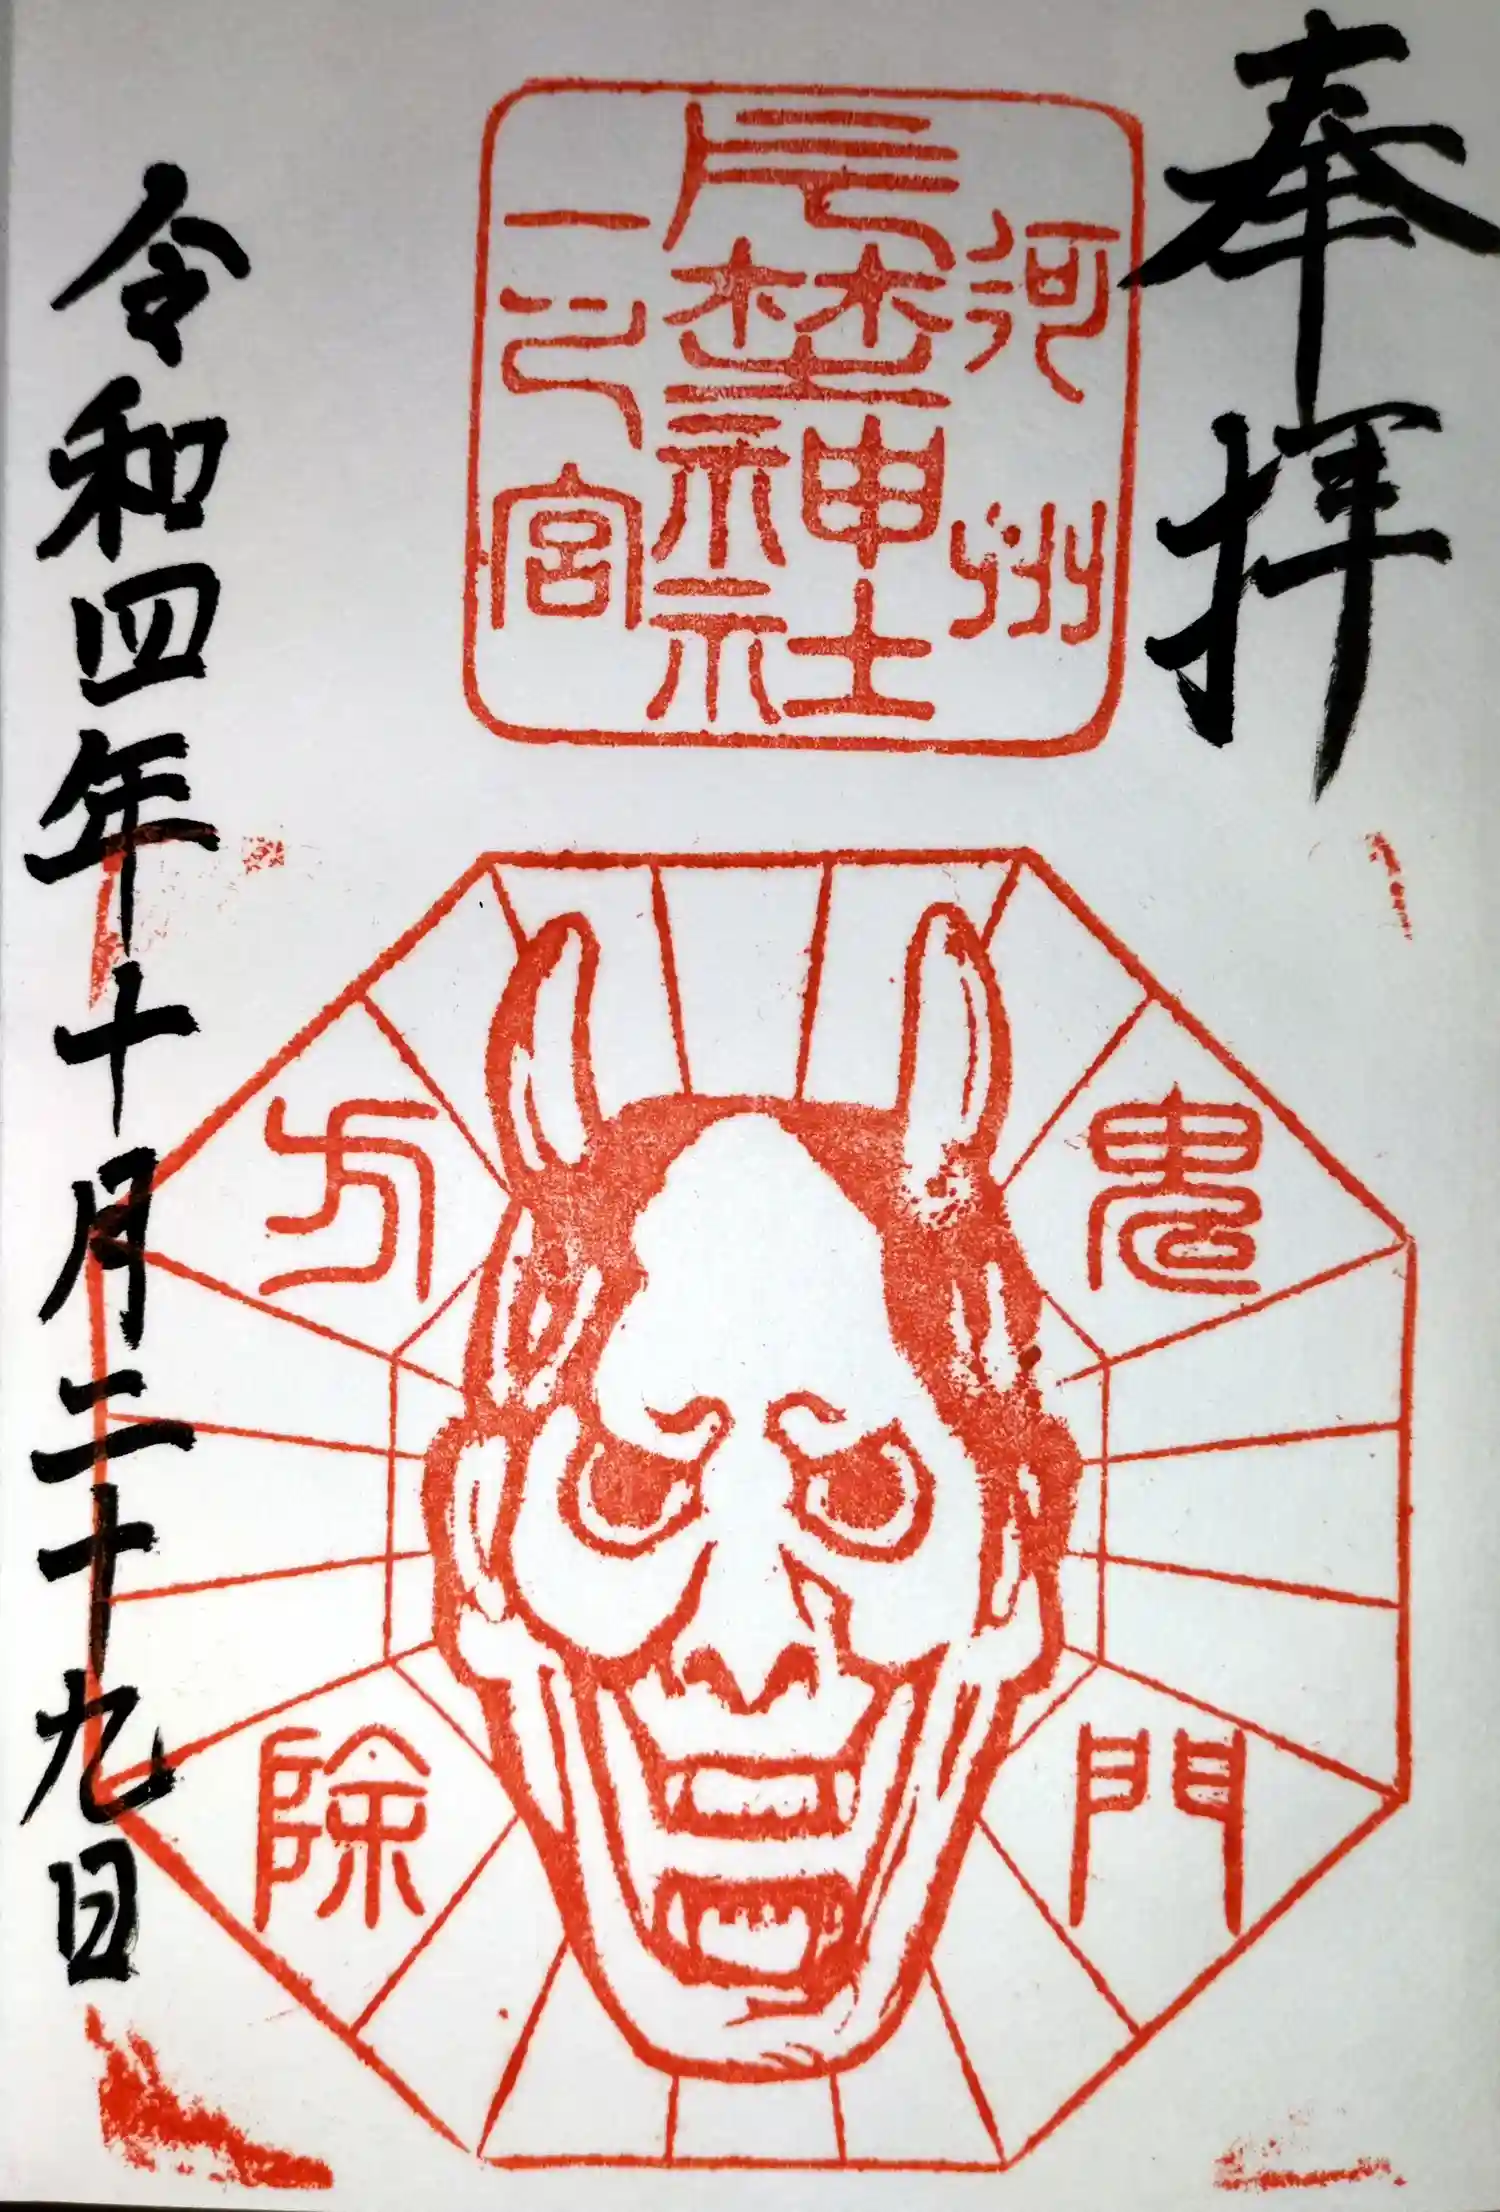 奉拝
河州
片埜神社
一之宮
鬼門
方除
令和四年十月二十九日